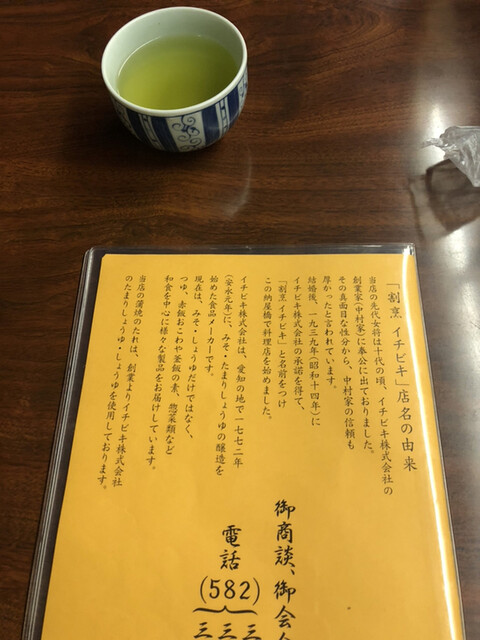 「割烹 イチビキ」店名の由来
当店の先代女将は十代の頃、イチビキ株式会社の
創業家(中村家)に奉公に出ておりました。
その真面目な性分から、中村家の信頼も
厚かったと言われています。
結婚後、一九三九年(昭和十四年)に
イチビキ株式会社の承諾を得て、
「割烹 イチビキ」と名前をつけ
この納屋橋で料理店を始めました。
イチビキ株式会社は、愛知の地で一七七二年
(安永元年)に、みそ・たまりしょうゆの醸造を
始めた食品メーカーです。
現在は、みそ・しょうゆだけではなく、
つゆ、赤飯おこわや釜飯の素、惣菜類など
和食を中心に様々な製品をお届けしています。
当店の蒲焼のたれは、創業よりイチビキ株式会社
のたまりしょうゆ・しょうゆを使用しております。
御商談、御会
電話(582)
三三三